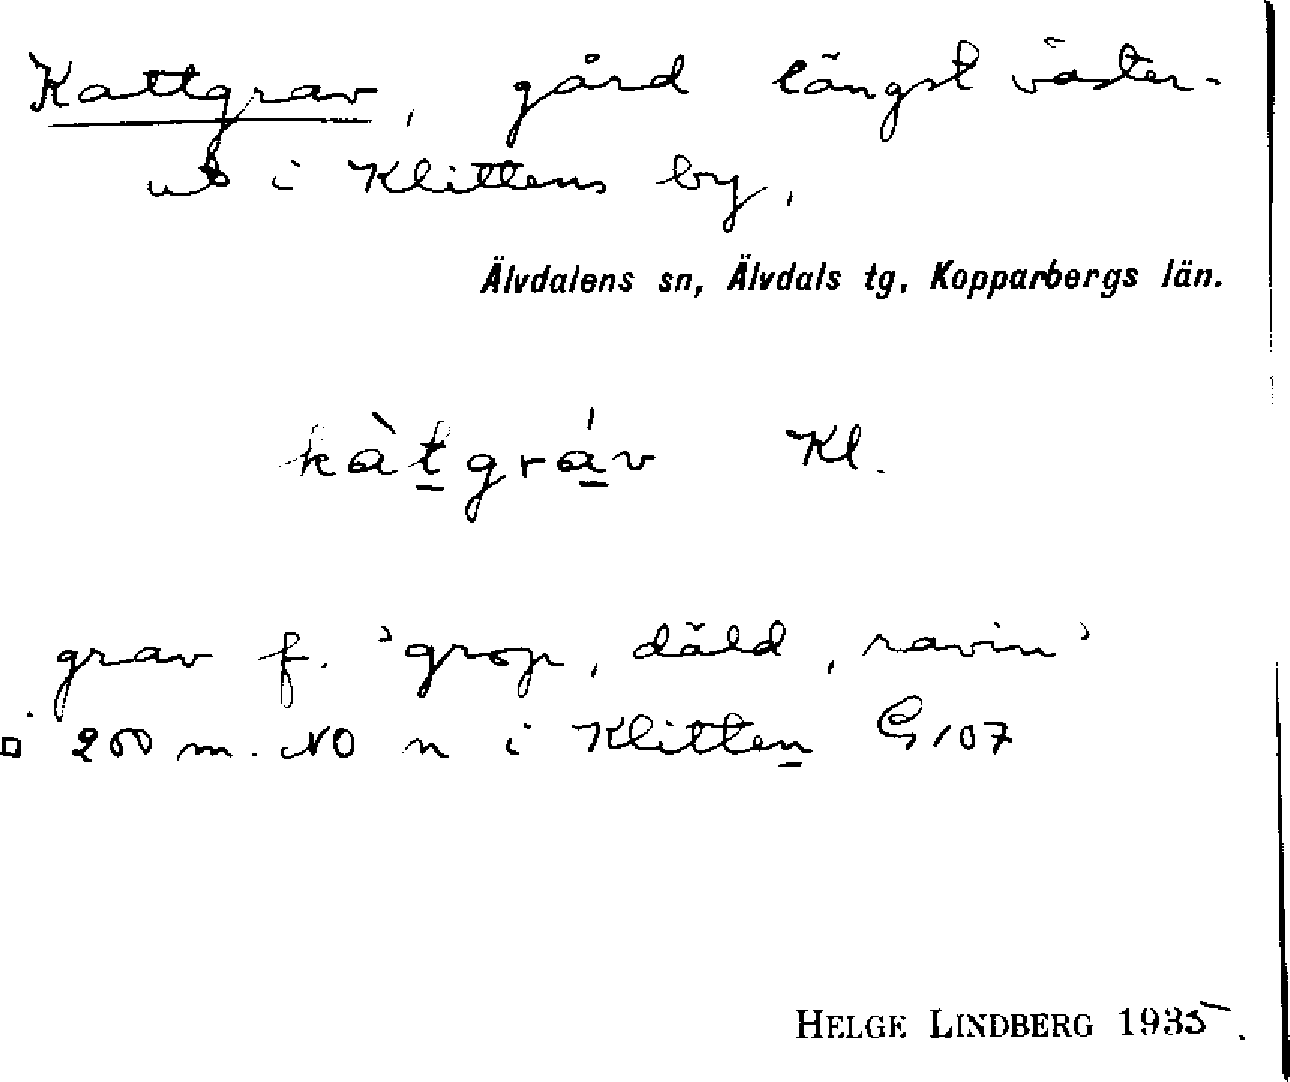 Kattgrav, gård längst väster-
ut i Klittens by,
Älvdalens sn, Älvdals tg, Kopparbergs län.
kàt̲grá̲v Kl.
grav f. 'grop, däld, ravin'
200 m. NO n i Klitten̲ G107
HELGE LINDBERG 1935.